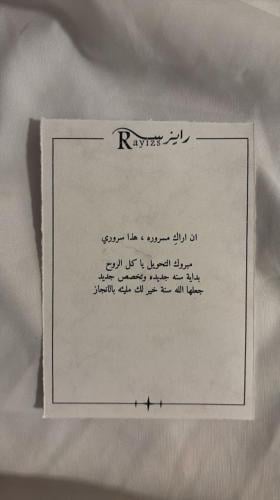 رايزس
Rayizs
ان اراكِ مسروره ، هذا سروري
مبروك التحويل يا كل الروح
بداية سنه جديده وتخصص جديد
جعلها الله سنة خير لك مليئه بالانجاز